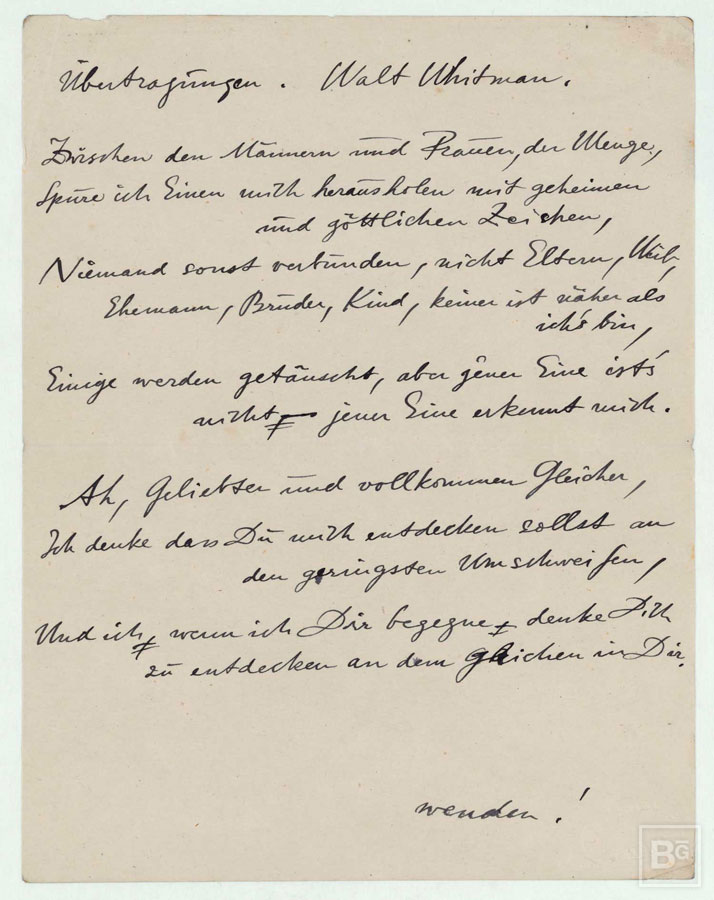 Übertragungen. Walt Whitman.
Zwischen den Männern und Frauen, der Menge,
Spüre ich Einen mich herausholen mit geheimen
und göttlichen Zeichen,
Niemand sonst verbunden, nicht Eltern, Weib,
Ehemann, Bruder, Kind, keiner ist näher als
ich's bin,
Einige werden getäuscht, aber jener Eine ist's
nicht – jener Eine erkennt mich.
Ah, Geliebter und vollkommen Gleicher,
Ich denke dass Du mich entdecken sollst an
den geringsten Umschweifen,
Und ich, wenn ich Dir begegne, denke Dich
zu entdecken an dem gleichen in Dir.
wenden!
BG